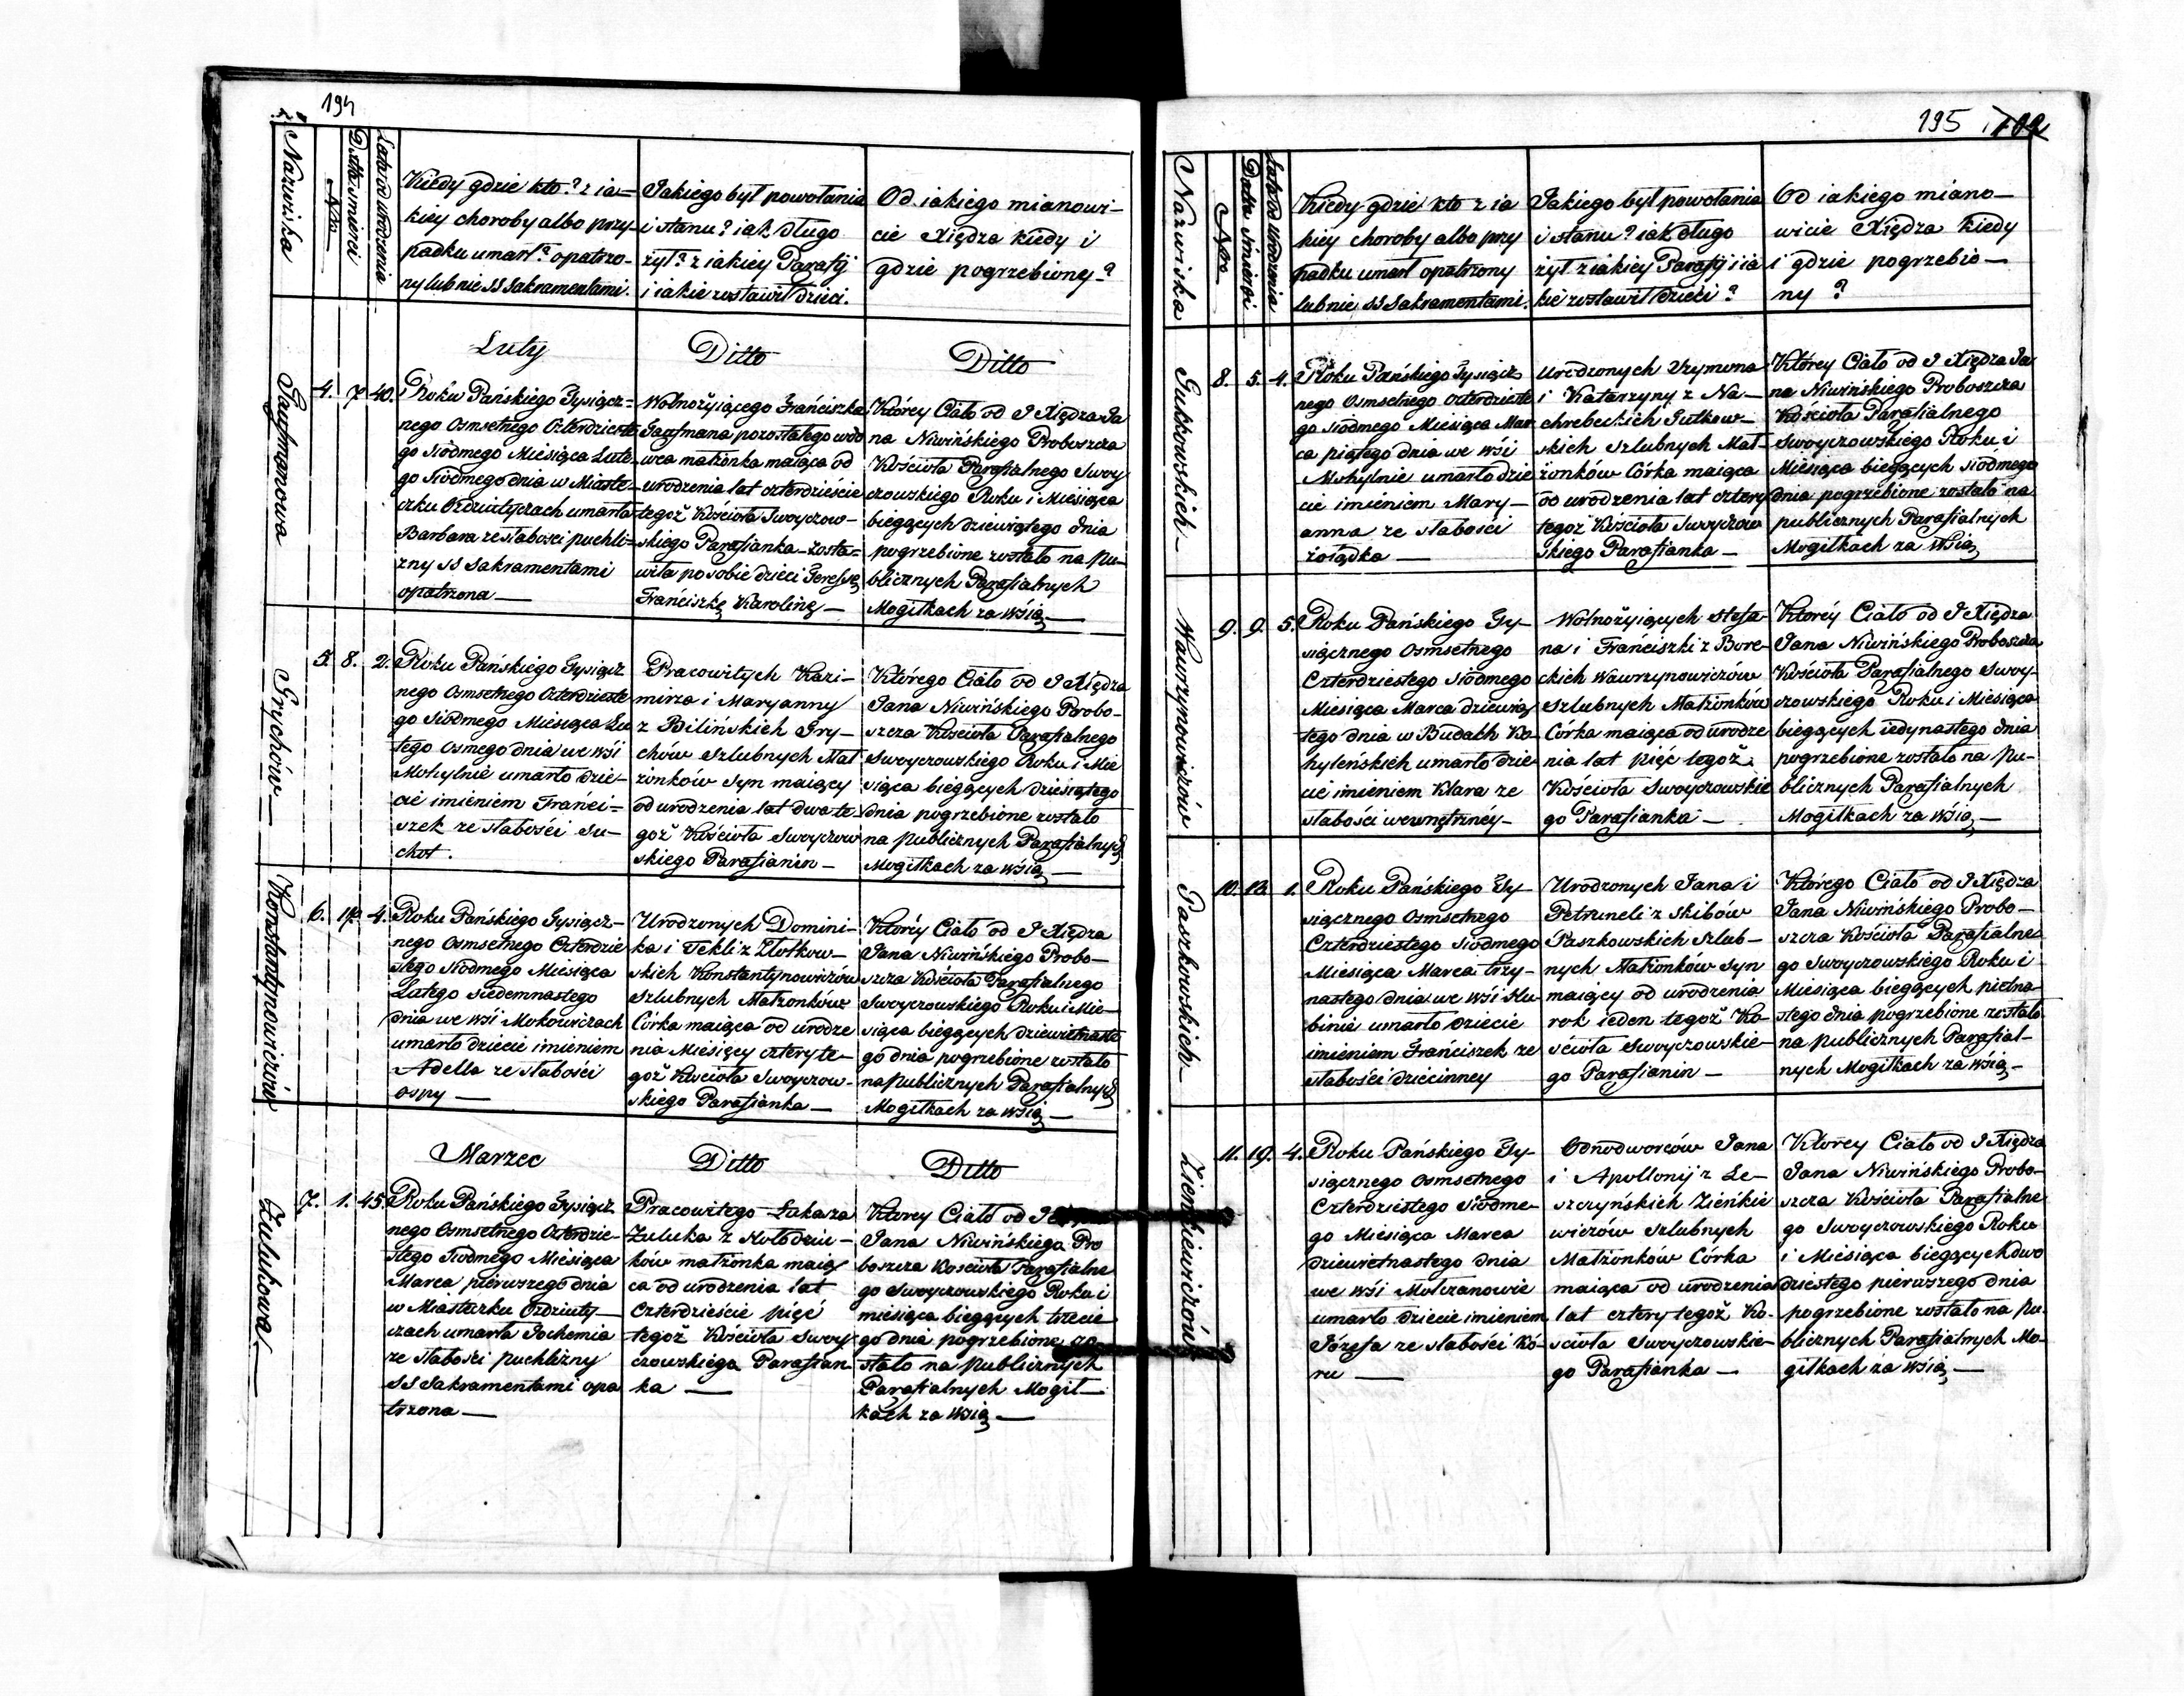 194
Nazwiska
Nro
Datta śmierci
Lata od urodzenia
Kiedy gdzie kto? z ia=
kiey choroby albo przy-
padku umarł? opatrzo-
ny lub nie SS Sakramentami.
Jakiego był powołania
i stanu? iak długo
żył? z iakiey Parafij
i iakie zostawił dzieci.
Od iakiego mianowi-
cie Xiędza kiedy i
gdzie pogrzebiony?
Luty
Ditto
Ditto
4. 7. 40.
Roku Pańskiego Tysiącz=
nego Osmsetnego Czterdzieste
go Siódmego Miesiąca Lute-
go Siódmego dnia w Miaste-
czku Ozdziutyczach umarła
Barbara ze słabosci puchli=
zny SS Sakramentami
opatrzona —
Wolnożyiącego Franciszka
Taufmana pozostałego wdo
wca małżonka maiąca od
urodzenia lat czterdzieście
tegoż Kościoła Swoyczow-
skiego Parafianka — Zosta=
wiła po sobie dzieci Teressę
Franciszkę Karolinę —
Którey Ciało od J Xiędza Ja
na Niwińskiego Proboszcza
Kościoła Parafialnego Swoy
czowskiego Roku i Miesiąca
bieżących dziewiątego dnia
pogrzebione zostało na pu-
blicznych Parafialnych
Mogiłkach za wsią —
Grychów —
5. 8. 2.
Roku Pańskiego Tysiącz
nego Osmsetnego Czterdzieste
go Siódmego Miesiąca Lu
tego Osmego dnia we wsi
Mohylnie umarło dzie-
cie imieniem Franci=
szek ze słabości Su-
chot.
Pracowitych Kazi-
mirza i Maryanny
z Bilińskich Gry-
chów Szlubnych Mał
żonków Syn maiący
od urodzenia lat dwa te-
goż Kościoła Swoyczow
skiego Parafianin —
Którego Ciało od J Xiędza
Jana Niwińskiego Probo-
szcza Kościoła Parafialnego
Swoyczowskiego Roku i Mie
siąca bieżących dziesiątego
dnia pogrzebione zostało
na publicznych Parafialnych
Mogiłkach za wsią —
Konstantynowiczów
6. 17. 4.
Roku Pańskiego Tysiącz-
nego Osmsetnego Czterdzie
stego Siódmego Miesiąca
Lutego siedemnastego
dnia we wsi Mokowiczach
umarło dziecie imieniem
Adella ze słabości
ospy —
Urodzonych Domini-
ka i Tekli z Złotkow-
skich Konstantynowiczów
Szlubnych Małżonków
Córka maiąca od urodze
nia Miesięcy cztery te-
goż Kościoła Swoyczow-
skiego Parafianka —
Którey Ciało od J Xiędza
Jana Niwińskiego Probo-
szcza Kościoła Parafialnego
Swoyczowskiego Roku i Mie-
siąca bieżących dziewietnaste
go dnia pogrzebione zostało
na publicznych Parafialnych
Mogiłkach za wsią —
Marzec
Ditto
Ditto
Żulukowa
7. 1. 45.
Roku Pańskiego Tysiącz
nego Osmsetnego Czterdzie-
stego Siódmego Miesiąca
Marca pierwszego dnia
w Miasteczku Ozdziuty-
czach umarła Jochemia
ze słabości puchlizny
SS Sakramentami opa
trzona —
Pracowitego Łukasza
Żuluka z Hołodziu-
ków małżonka maią
ca od urodzenia lat
czterdzieście pięć
tegoż Kościoła Swoy
czowskiego Parafian
ka —
Którey Ciało od J
Jana Niwińskiego Pro
boszcza Kościoła Parafialne
go Swoyczowskiego Roku i
miesiąca bieżących trzecie
go dnia pogrzebione zo-
stało na publicznych
Parafialnych Mogił-
kach za wsią —
195
Nazwiska
Nro
Datta śmierci
Lata od urodzenia
Kiedy gdzie kto z ia
kiey choroby albo przy
padku umarł opatrzony
lub nie SS Sakramentami.
Jakiego był powołania
i stanu? iak długo
żył z iakiey Parafij i ia
kie zostawił dzieci?
Od iakiego miano-
wicie Xiędza kiedy
i gdzie pogrzebio-
ny?
Gutkowskich —
8. 5. 4.
Roku Pańskiego Tysiącz
nego Osmsetnego Czterdzieste
go Siódmego Miesiąca Mar
ca piątego dnia we wsi
Mohylnie umarło dzie
cie imieniem Mary-
anna ze słabości
żołądka —
Urodzonych Szymona
i Katarzyny z Na-
chrebeckich Gutkow-
skich Szlubnych Mał-
żonków Córka maiąca
od urodzenia lat cztery
tegoż Kościoła Swoyczow
skiego Parafianka —
Którey Ciało od J Xiędza Ja
na Niwińskiego Proboszcza
Kościoła Parafialnego
Swoyczowskiego Roku i
Miesiąca bieżących siódmego
dnia pogrzebione zostało na
publicznych Parafialnych
Mogiłkach za wsią
Wawrzynowiczów
9. 9. 5.
Roku Pańskiego Ty-
siącznego Osmsetnego
Czterdziestego Siódmego
Miesiąca Marca dziewią
tego dnia w Budach Ko-
hyleńskich umarło dzie
cie imieniem Klara ze
słabości wewnętrzney —
Wolnożyiących Stefa
na i Franciszki z Bore-
ckich Wawrzynowiczów
Szlubnych Małżonków
Córka maiąca od urodze
nia lat pięć tegoż
Kościoła Swoyczowskie
go Parafianka —
Którey Ciało od J Xiędza
Jana Niwińskiego Proboszcza
Kościoła Parafialnego Swoy-
czowskiego Roku i Miesiąca
bieżących iedynastego dnia
pogrzebione zostało na pu-
blicznych Parafialnych
Mogiłkach za wsią —
Paszkowskich —
10. 13. 1.
Roku Pańskiego Ty-
siącznego Osmsetnego
Czterdziestego Siódmego
Miesiąca Marca trzy-
nastego dnia we wsi Hu
binie umarło dziecie
imieniem Franciszek ze
słabości dziecinney
Urodzonych Jana i
Petruneli z Skibów
Paszkowskich Szlub-
nych Małżonków Syn
maiący od urodzenia
rok ieden tegoż Ko-
ścioła Swoyczowskie-
go Parafianin —
Którego Ciało od J Xiędza
Jana Niwińskiego Probo-
szcza Kościoła Parafialne-
go Swoyczowskiego Roku i
Miesiąca bieżących piętna-
stego dnia pogrzebione zostało
na publicznych Parafial-
nych Mogiłkach za wsią —
Zienkiewiczów
11. 19. 4.
Roku Pańskiego Ty-
siącznego Osmsetnego
Czterdziestego Siódme-
go Miesiąca Marca
dziewietnastego dnia
we wsi Mołczanowie
umarło dziecie imieniem
Józefa ze słabości Ko-
ru —
Odnodworców Jana
i Apollonij z Le-
szczyńskich Zienkie
wiczów Szlubnych
Małżonków Córka
maiąca od urodzenia
lat cztery tegoż Ko-
ścioła Swoyczowskie-
go Parafianka —
Którey Ciało od J Xiędza
Jana Niwińskiego Probo-
szcza Kościoła Parafialne
go Swoyczowskiego Roku
i Miesiąca bieżących dwu
dziestego pierwszego dnia
pogrzebione zostało na pu-
blicznych Parafialnych Mo-
giłkach za wsią —